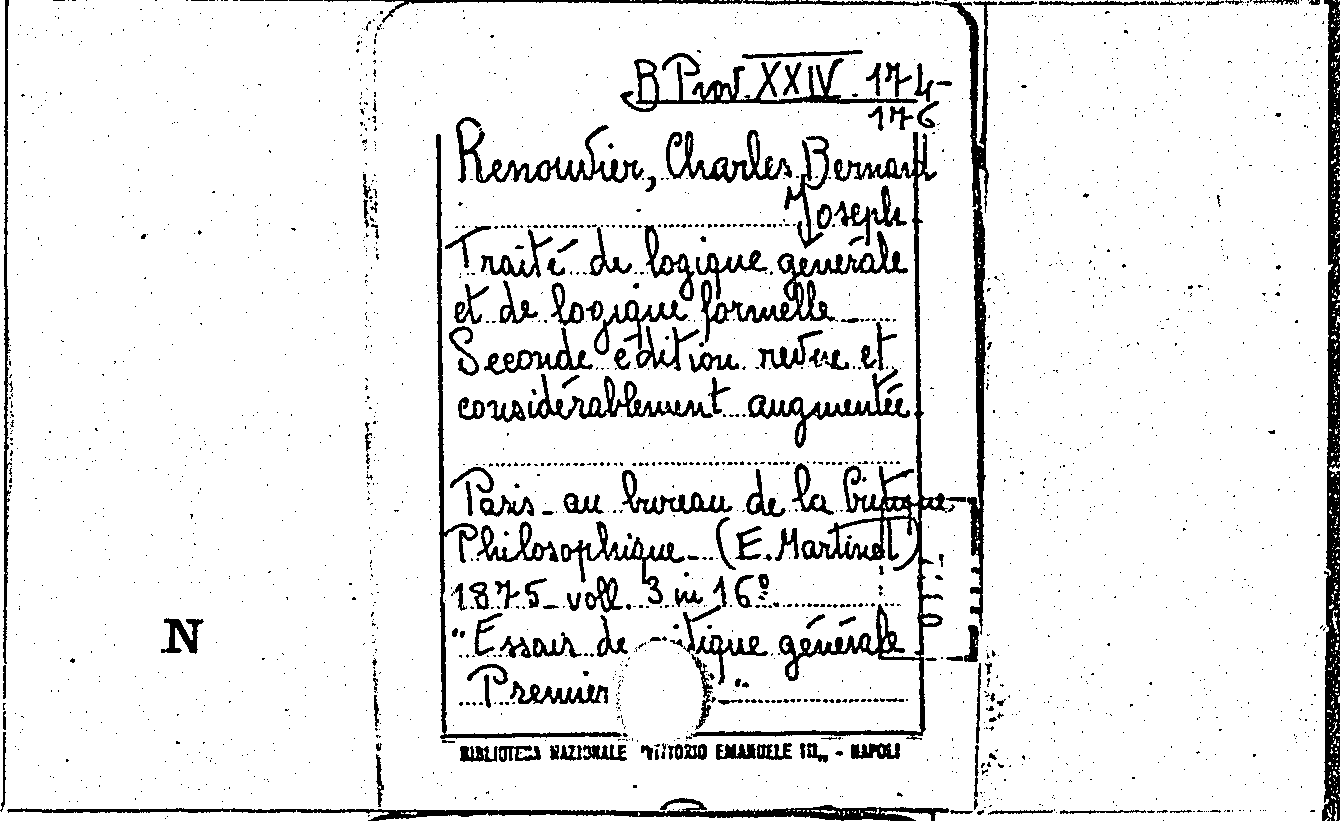 B Prov. XXIV. 174-
176
Renouvier, Charles Bernard
Joseph.
Traité de logique générale
et de logique formelle_
Seconde édition revue et
considérablement augmentée.
Paris_ au bureau de la Critique
Philosophique_ (E. Martinet)
1875_ voll. 3 in 16º.
"Essais de critique générale
Premier "
N
BIBLIOTECA NAZIONALE "VITTORIO EMANUELE III„ - NAPOLI